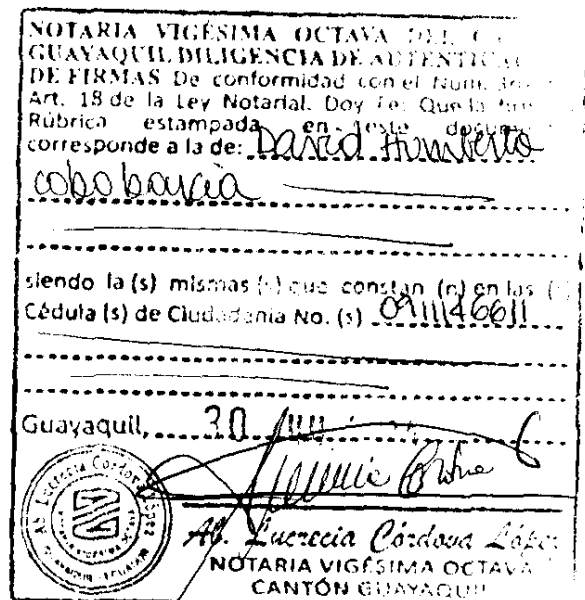 NOTARIA VIGÉSIMA OCTAVA DEL
GUAYAQUIL DILIGENCIA DE
DE FIRMAS De conformidad con el Num.
Art. 18 de la Ley Notarial. Doy Fe: Que la
Rúbrica estampada en este
corresponde a la de: David Humberto
cobo
siendo la (s) mismas (s) que constan (n) en las
Cédula (s) de Ciudadanía No. (s) 0911146611
Guayaquil, 30
Ab. Lucrecia Córdova López
NOTARIA VIGÉSIMA OCTAVA
CANTÓN GUAYAQUIL